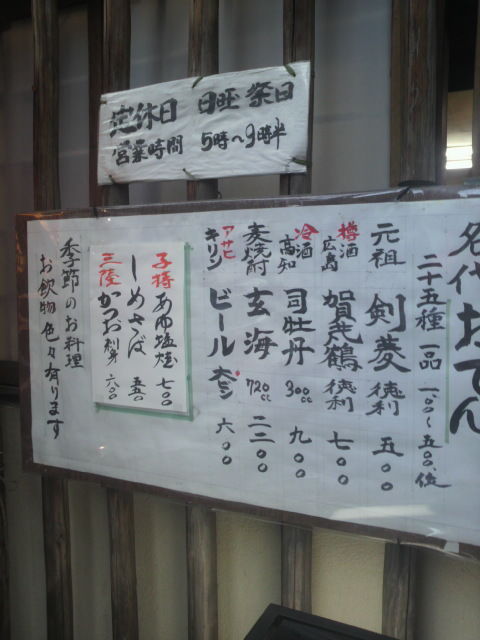 定休日 日曜 祭日
営業時間 5時〜9時半
名代おでん
二十五種 一品 一〇〇〜五〇〇、位
元祖 剣菱 徳利 五〇〇
樽酒 広島 賀茂鶴 徳利 七〇〇
冷酒 高知 司牡丹 300cc 九〇〇
麦焼酎 玄海 720cc 二二〇〇
アサヒ キリン ビール 大ジョッキ 六〇〇
子持あゆ塩焼 七〇〇
しめさば 五五〇
三陸かつお刺身 六〇〇
季節のお料理
お飲物色々有ります